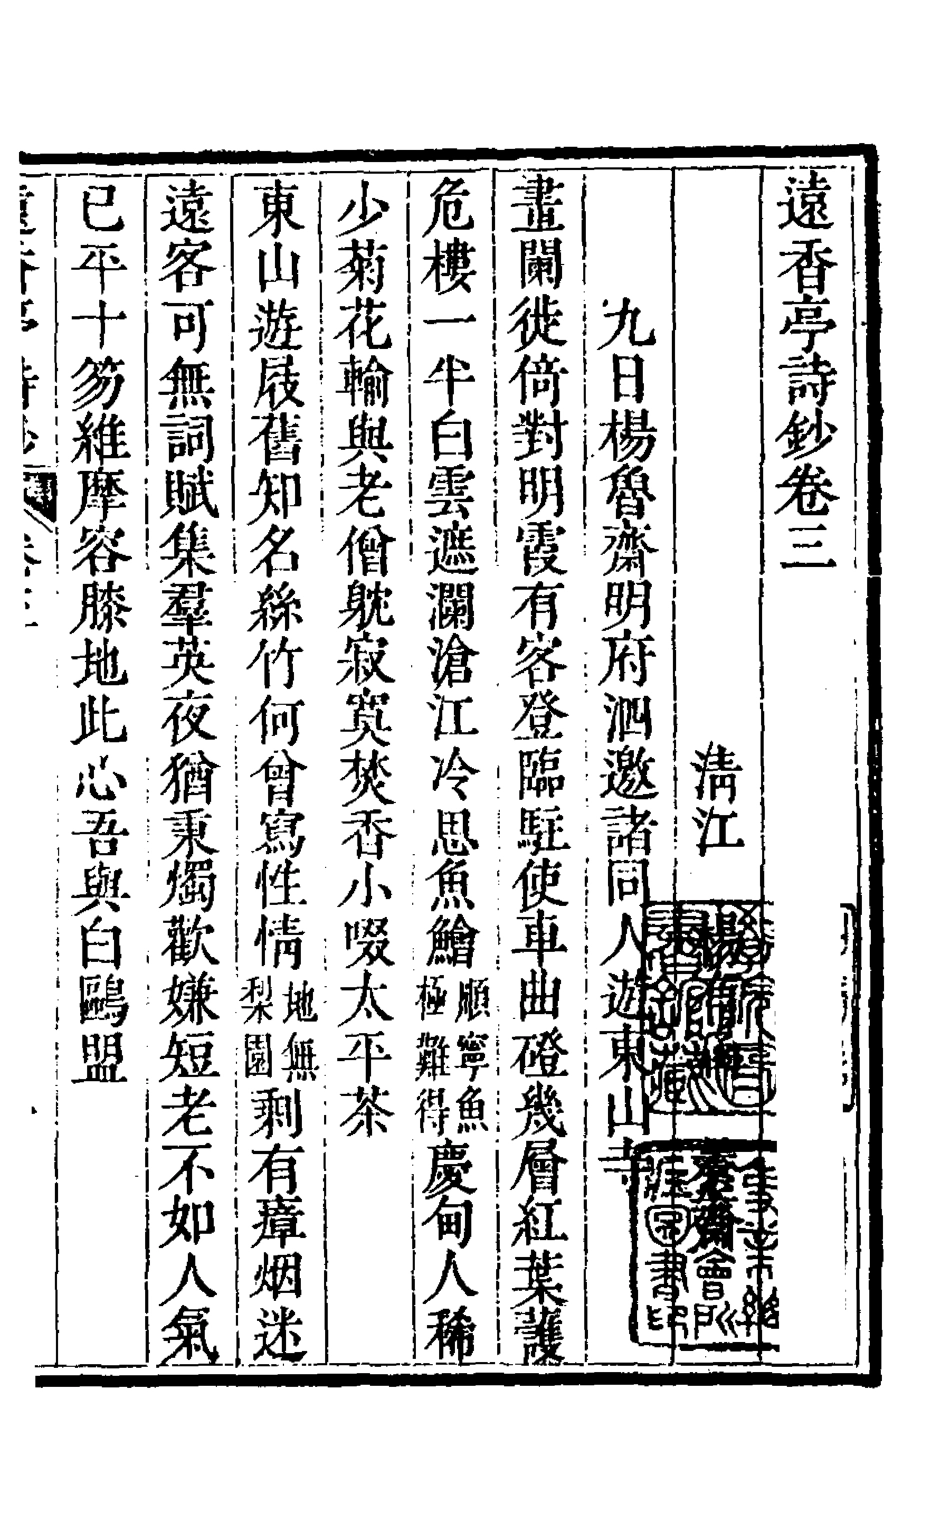 遠香亭詩鈔卷三
清江
九日楊魯齋明府泗邀諸同人遊東山寺
畫闌徙倚對明霞有客登臨駐使車曲磴幾層紅葉護
危樓一半白雲遮瀾滄江冷思魚鱠順寧魚極難得慶甸人稀
少菊花輸與老僧躭寂寞焚香小啜太平茶
東山遊屐舊知名絲竹何曾寫性情地無梨園剩有瘴烟迷
遠客可無詞賦集羣英夜猶秉燭歡嫌短老不如人氣
已平十笏維摩容膝地此心吾與白鷗盟